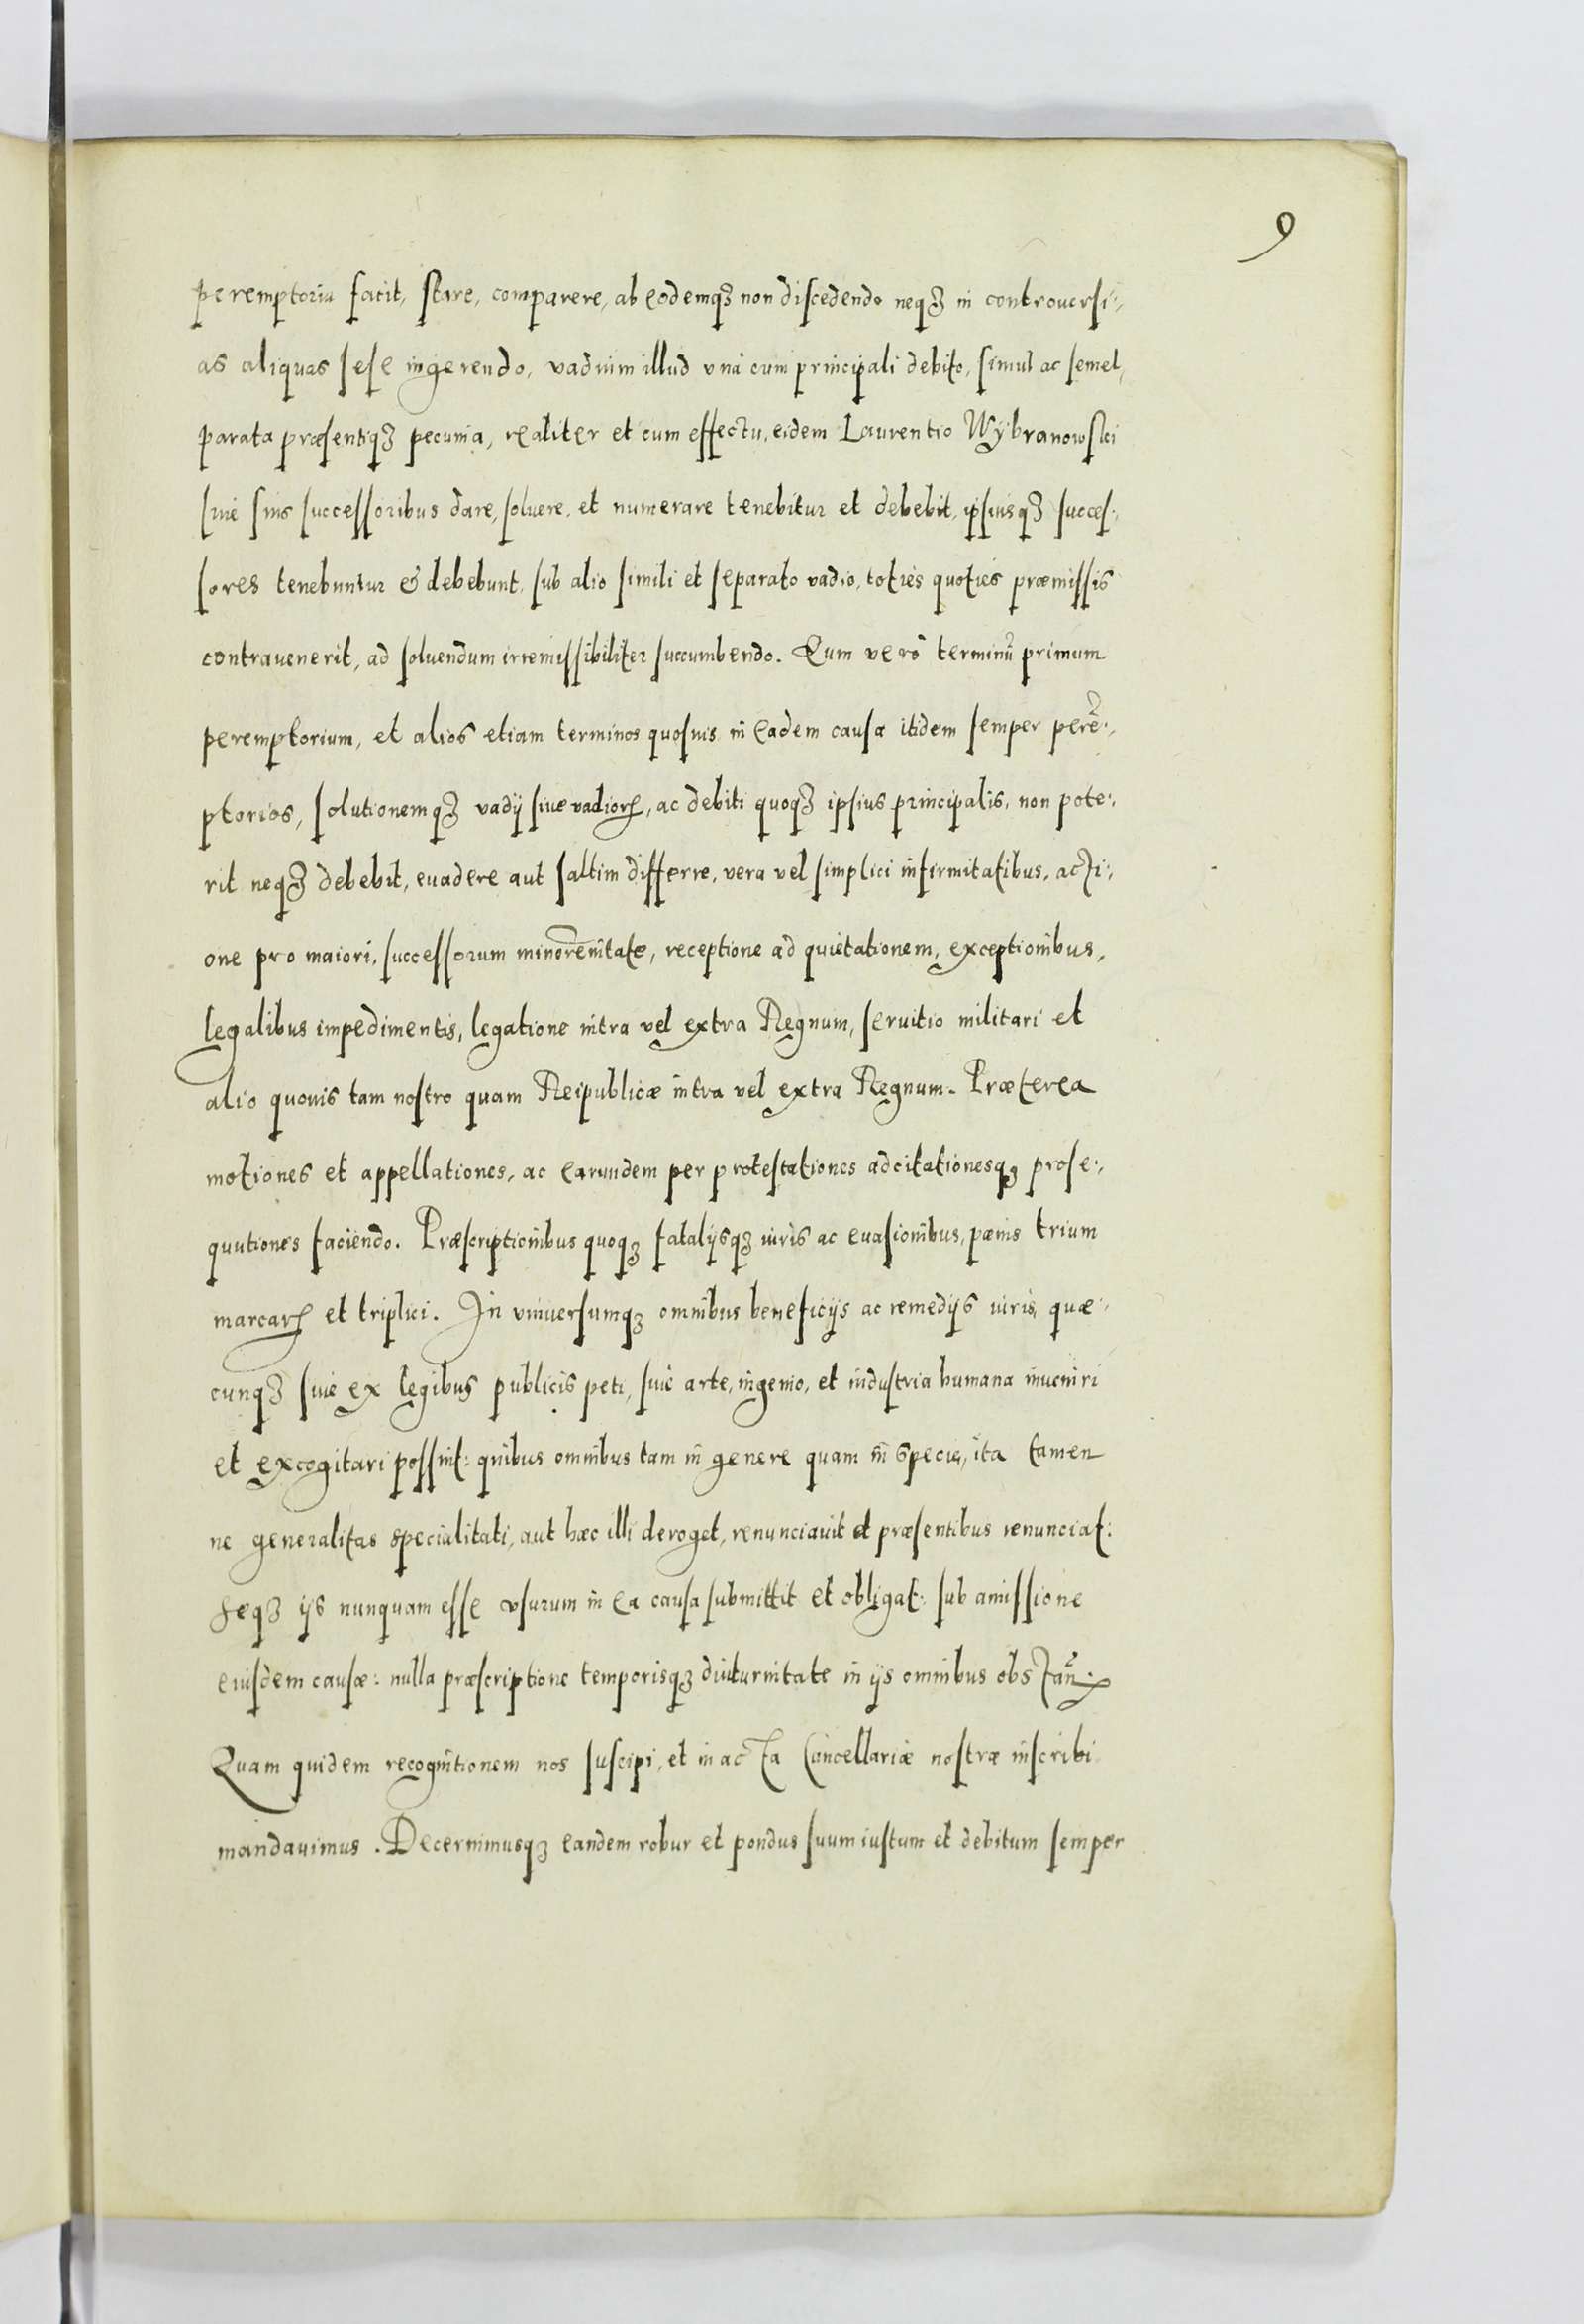 9
peremptoriu facit, stare, comparere, ab eodemq₃ non discedendo neq₃ in controuersi:,
as aliquas sese ingerendo, vadium illud vnà cum principali debito, simul ac semel,
parata præsentiq₃ pecunia, realiter et cum effectu, eidem Laurentio Wÿbranowski
siue suis successoribus dare, soluere, et numerare tenebitur et debebit, ipsiusq₃ succes:,
sores tenebuntur & debebunt, sub alio simili et separato vadio, toties quoties præmissis
contrauenerit, ad soluendum irremissibiliter succumbendo. Eum vero terminũ primum
peremptorium, et alios etiam terminos quosuis in eadem causa itidem semper perẽ:,
ptorios, solutionemq₃ vadij siue vadiorꝝ, ac debiti quoq₃ ipsius principalis, non pote:,
rit neq₃ debebit, euadere aut saltim differre, vera vel simplici infirmitatibus, acti:,
one pro maiori, successorum minorenitate, receptione ad quietationem, exceptionibus,
legalibus impedimentis, legatione intra vel extra Regnum, seruitio militari et
alio quouis tam nostro quam Reipublicæ intra vel extra Regnum. Præterea
motiones et appellationes, ac earundem per protestationes adcitationesq₃ prose:,
quutiones faciendo. Præscriptionibus quoq₃ fatalijsq₃ iuris ac euasionibus, pænis trium
marcarꝝ et triplici. In vniuersumq₃ omnibus beneficijs ac remedijs iuris, quæ:,
cunq₃ siue ex legibus publicis peti, siue arte, ingenio, et industria humana inueniri
et excogitari possint: quibus omnibus tam in genere quam in specie, ita tamen
ne generalitas specialitati, aut hæc illi deroget, renunciauit et præsentibus renunciat:
seq₃ ijs nunquam esse vsurum in ea causa submittit et obligat: sub amissione
eiusdem causæ: nulla præscriptione temporisq₃ diuturnitate in ijs omnibus obstañ:
Quam quidem recognitionem nos suscipi, et in acta Cancellariæ nostræ inscribi
mandauimus. Decernimusq₃ eandem robur et pondus suum iustum et debitum semper